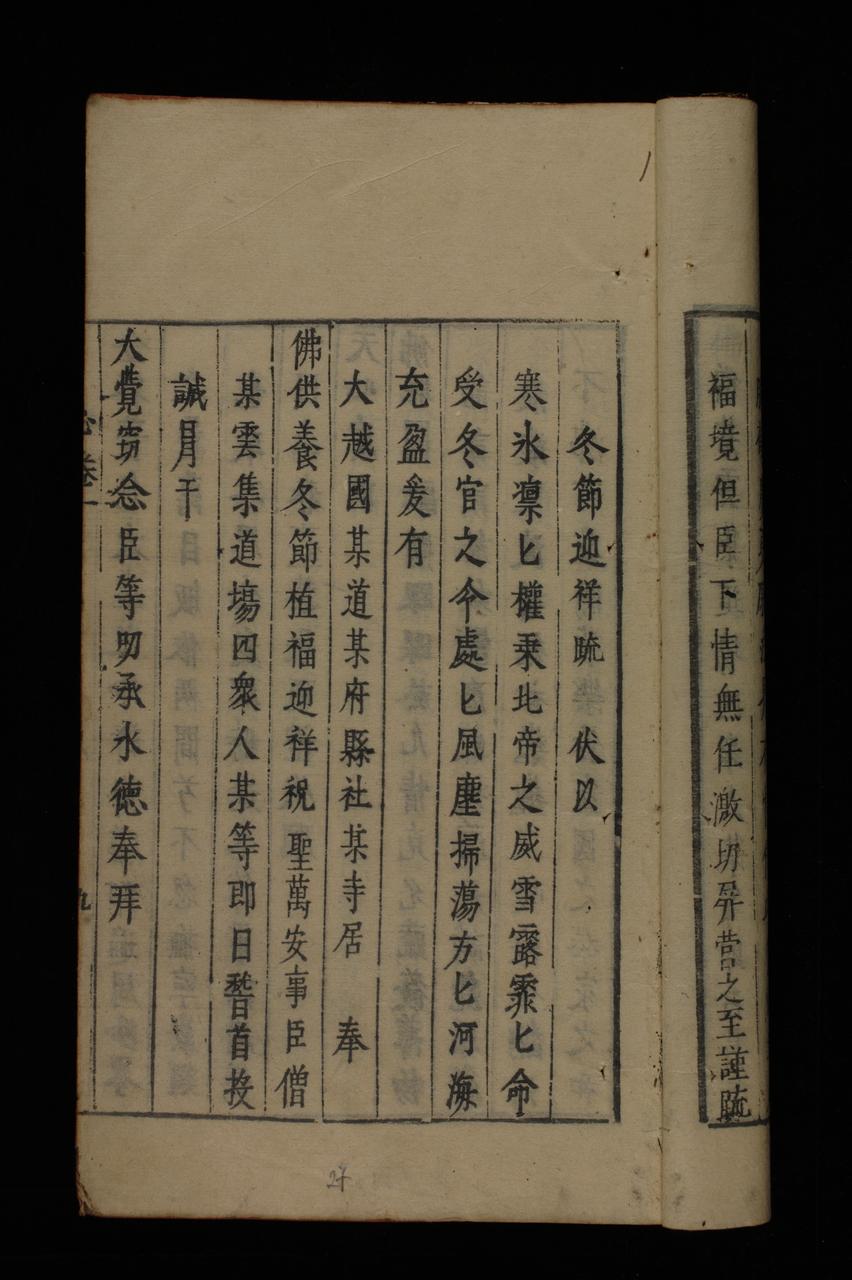 福境但臣下情無任激切屏營之至謹疏
冬節迎祥疏 伏以
寒氷凛匕權乘北帝之威雪露霏匕命
受冬官之令處匕風塵掃蕩方匕河海
充盈爰有
大越國某道某府縣社某寺居 奉
佛供養冬節植福迎祥祝聖萬安事臣僧
某雲集道塲四衆人某等即日稽首投
誠⺼干
大覺窃念臣等叨承水德奉拜
卷一
九
27